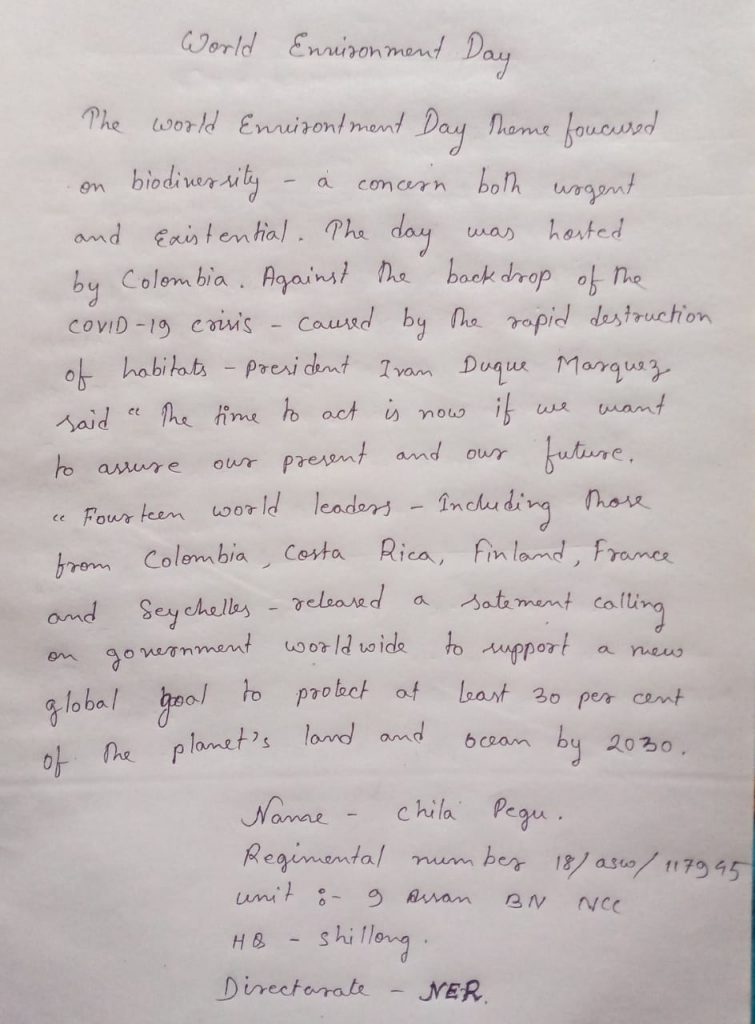 World Envuironment Day
The world Envuirontment Day Theme foucused
on biodiversity - a concern both urgent
and Existential. The day was hosted
by Colombia. Against the backdrop of the
COVID-19 crisis - caused by the rapid destruction
of habitats - president Ivan Duque Marquez
said " The time to act is now if we want
to assure our present and our future.
" Fourteen world leaders - Including those
from Colombia, Costa Rica, Finland, France
and Seychelles - released a satement calling
on government worldwide to support a new
global goal to protect at least 30 per cent
of the planet's land and ocean by 2030.
Name - Chila Pegu.
Regimental number 18/asw/117945
unit :- 9 Assan BN NCC
HQ - shillong.
Directarate - NER.